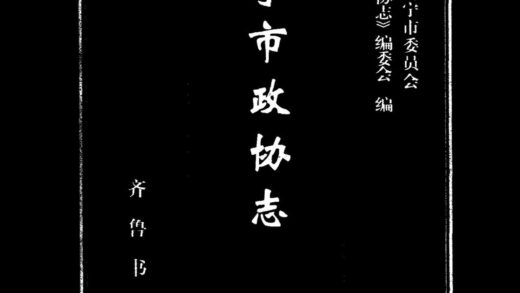 宁市委员会
协志》编委会 编
市政协志
齐鲁书